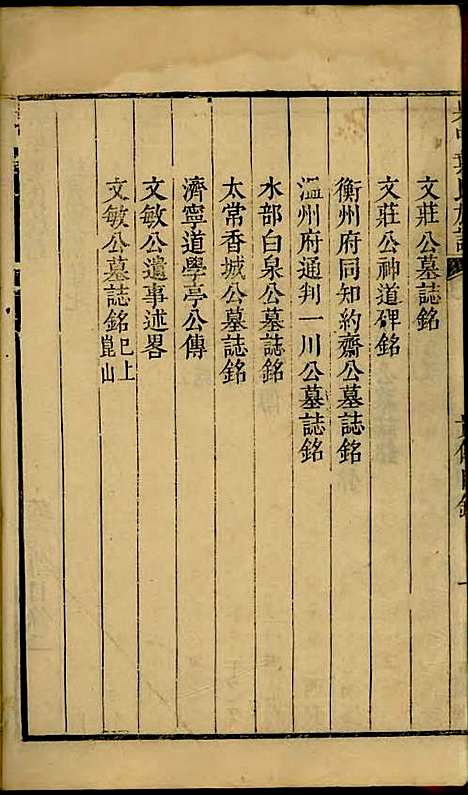 文莊公墓誌銘
文莊公神道碑銘
衡州府同知約齋公墓誌銘
溫州府通判一川公墓誌銘
水部白泉公墓誌銘
太常香城公墓誌銘
濟寧道學亭公傳
文敏公遺事述畧
文敏公墓誌銘巳上崑山